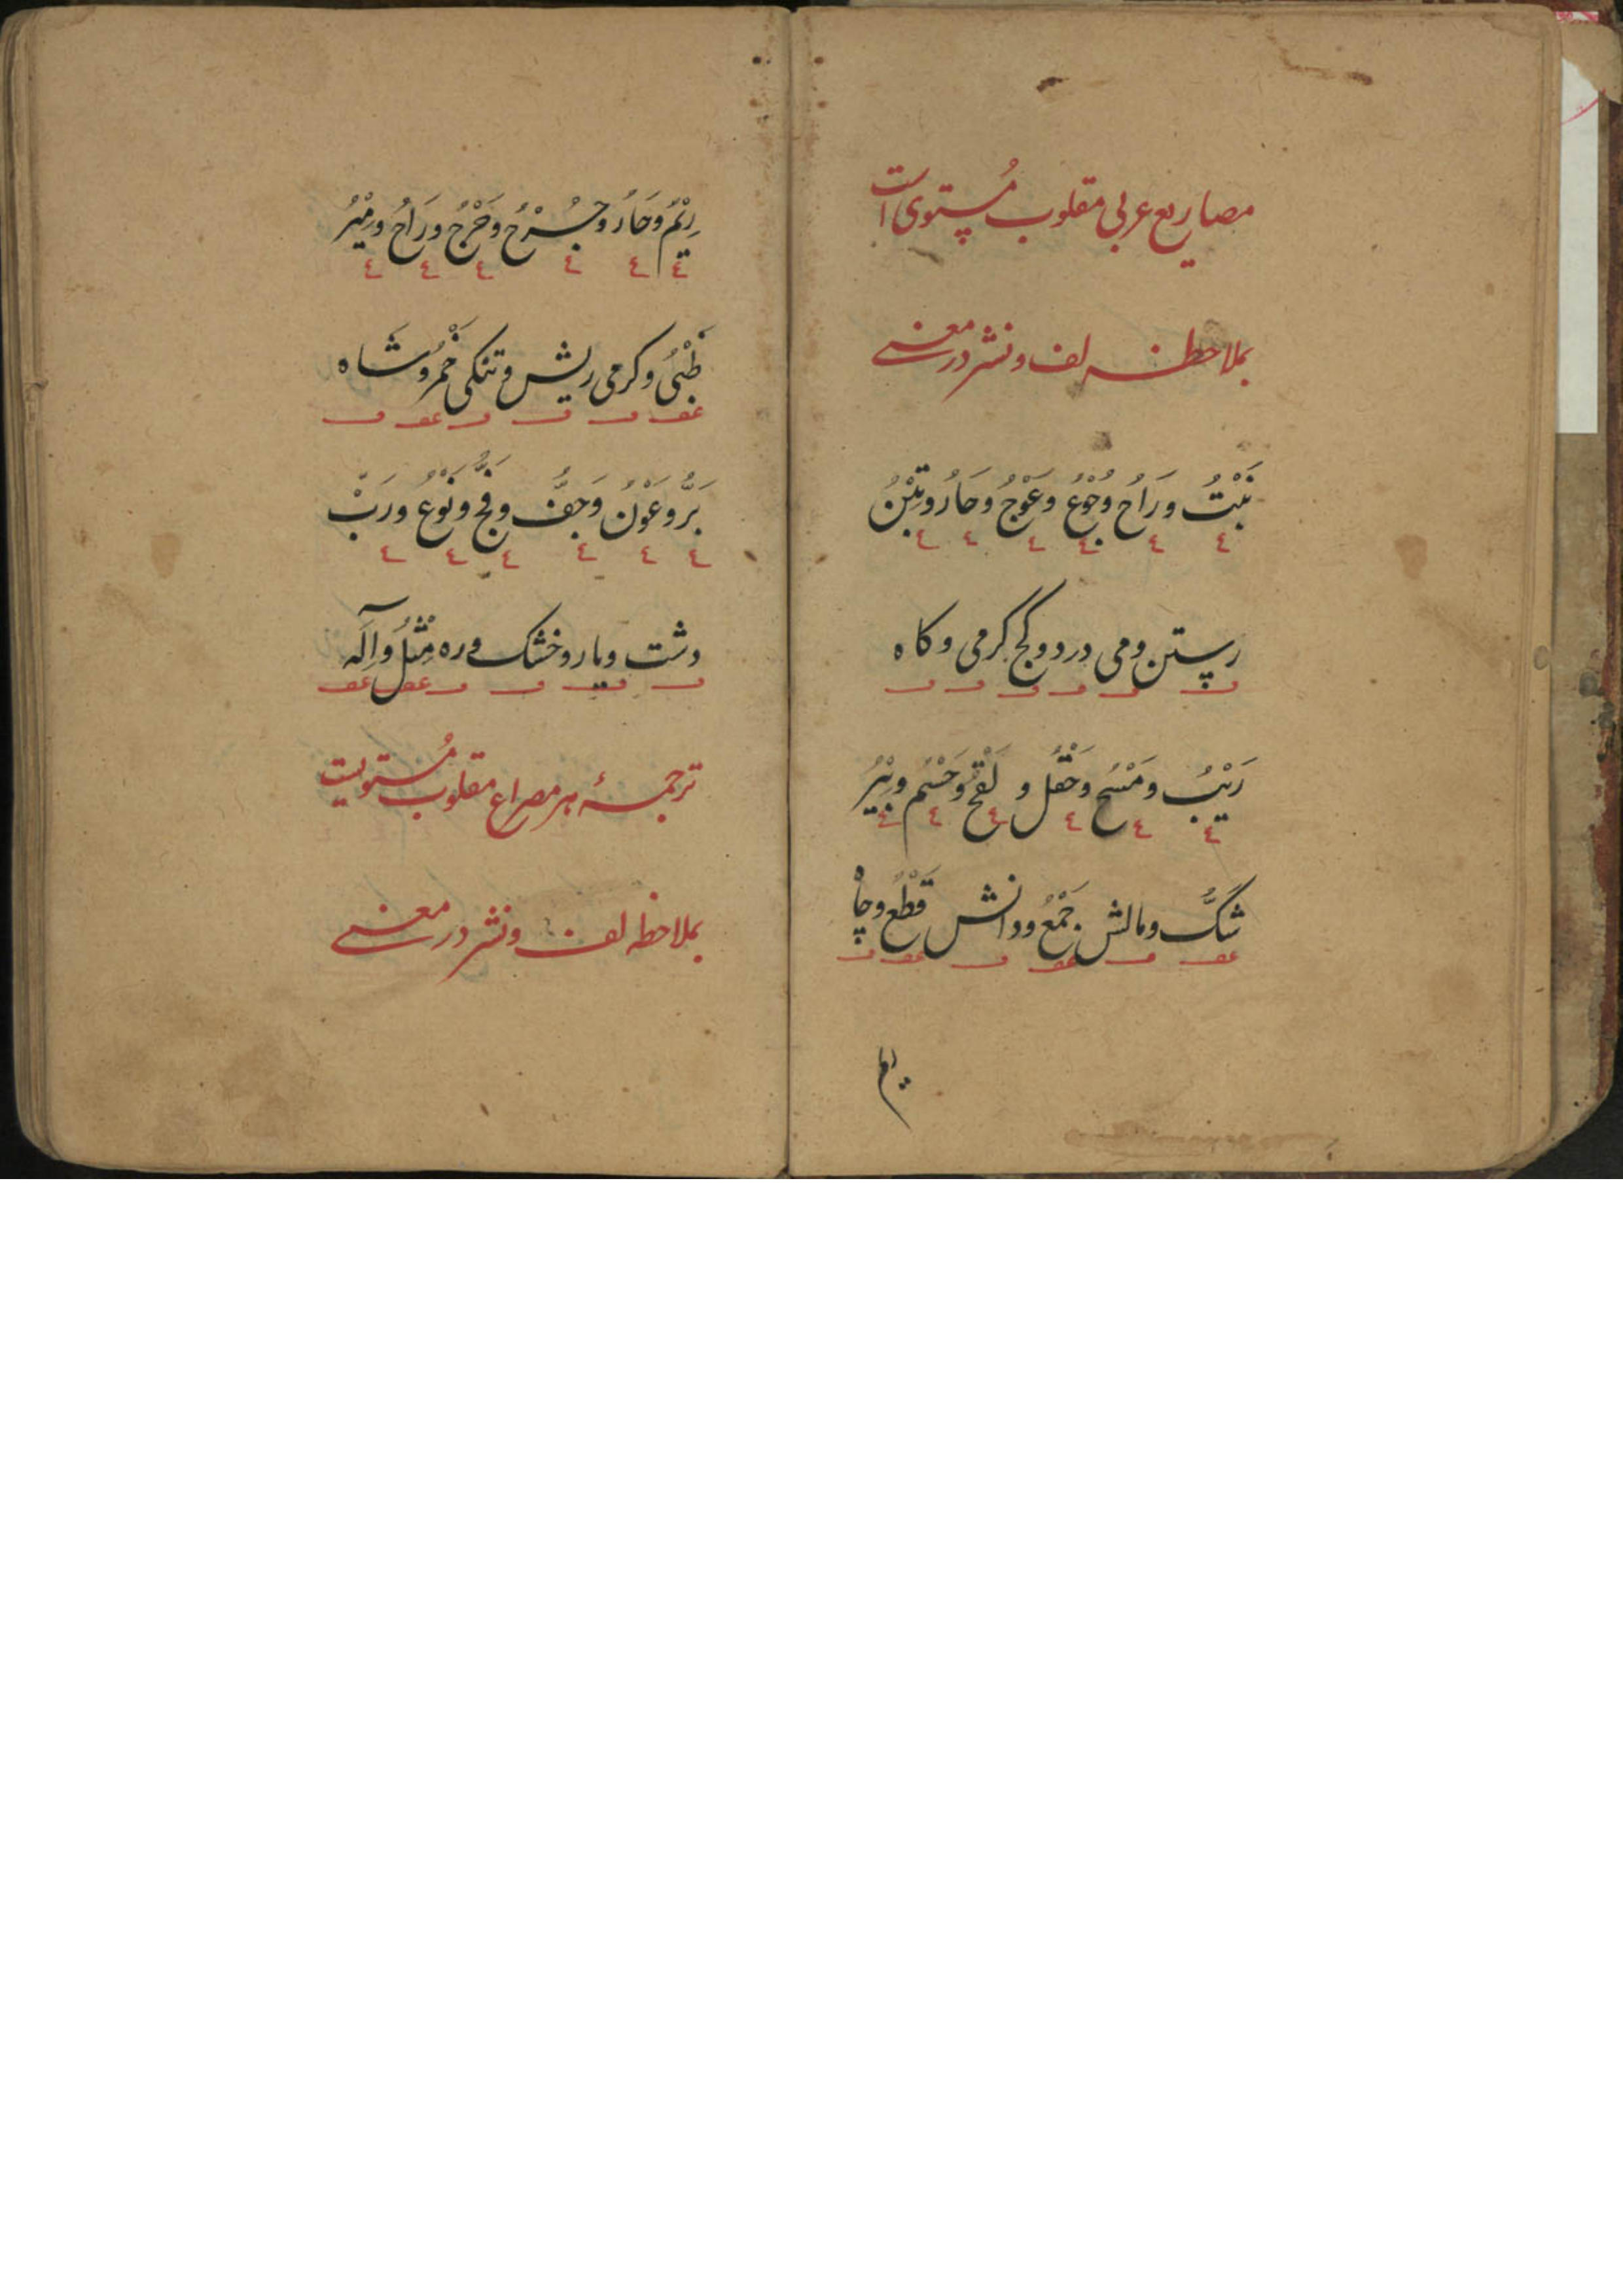 مصاریع عربی مقلوب مُستوی است
بملاحظه لف و نشر در معنی
نَبْتُ و رَاحُ وُجُوْعُ وعَوْجُ وحَارُ وتِبْنُ
ع ع ع ع ع ع
رستن و می درد و کج گرمی و کاه
ف ف ف ف ف ف
رَیْبُ ومَسْحُ وحَقْلُ و لَقْحُ وحَسْمُ وبِیْرُ
ع ع ع ع ع ع
شَکُّ ومالش جَمْعُ و دانش قَطْعُ وچاه
عف ف عف ف عف ف
ریم
رِیْمُ وحَارُ وجُرْحُ وحَرْجُ ورَاحُ ومِیْرُ
ع ع ع ع ع ع
ظَبْیُ وگرمی ریش و تنگی خَمْرُ وشاه
عف ف ف ف عف ف
بَرُّ وعَوْنُ وَجَفَّ و فَجُّ ونَوْعُ ورَبّ
ع ع ع ع ع ع
دشت و یار و خشک و ره مِثْلُ وآلَه
ف ف ف ف عف عف
ترجمهٔ هر مصراع مقلوب مُستویست
بملاحظه لف و نشر در معنی